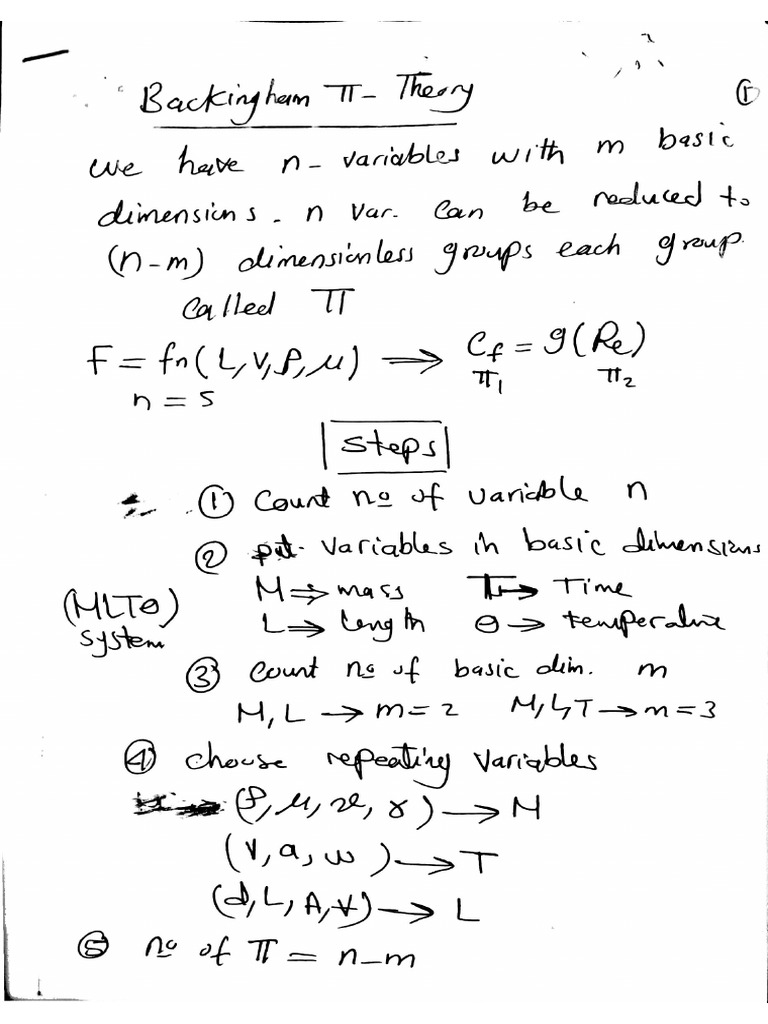 Backingham π- Theory
①
We have n- variables with m basic
dimensions. n var. can be reduced to
(n-m) dimensionless groups each group.
called π
F = fn(L,V,ρ,μ) ⟹ Cf = g(Re)
n = 5 π1 π2
Steps
① Count no of variable n
② put variables in basic dimensions
M ⇒ mass T → Time
(MLTθ) L ⇒ length θ → temperature
system
③ Count no of basic dim. m
M, L → m=2 M,L,T → m=3
④ choose repeating variables
(ρ, μ, γ) → M
(V, a, w) → T
(d, L, A, V) → L
⑤ no of π = n-m